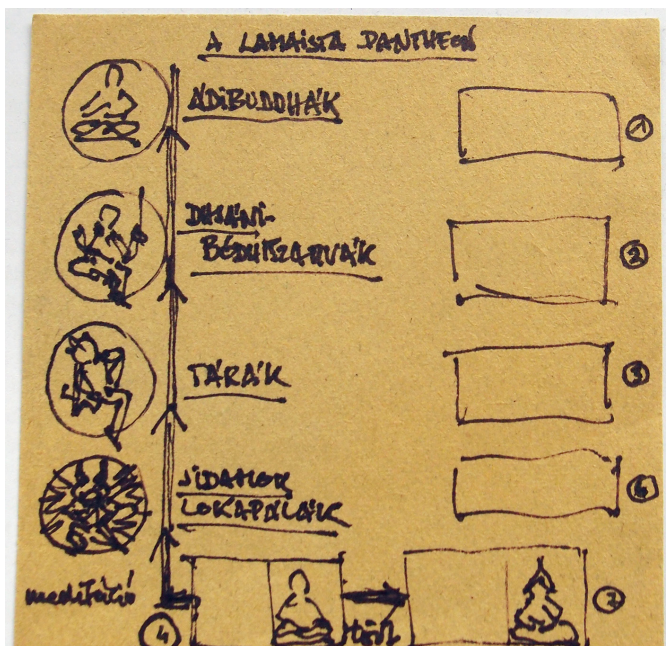 A LAMAISTA PANTHEON
ÁDIBUDDHÁK
1
DHJÁNI-
BÓDHISZATVÁK
2
TÁRÁK
3
JIDAMOK
LOKAPÁLÁK
6
meditáció
4
7